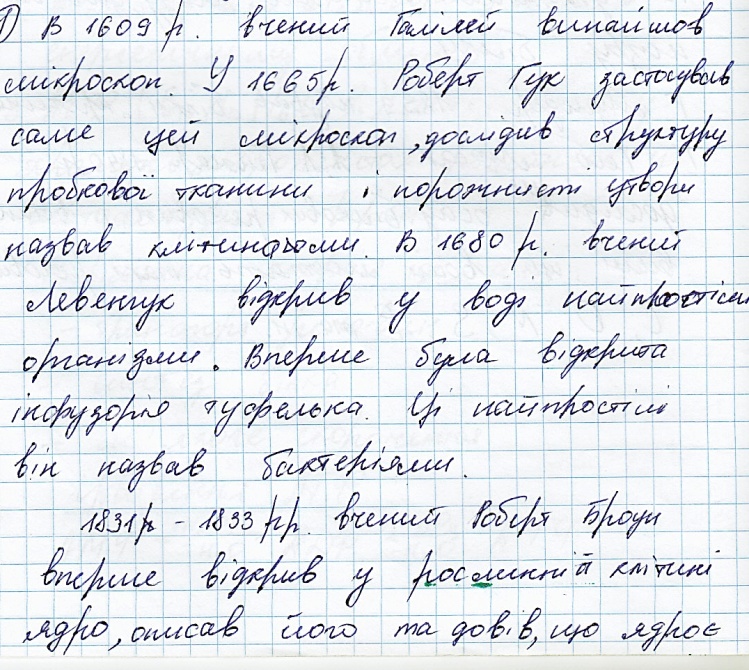 1) В 1609 р. вчений Галілей винайшов
мікроскоп. У 1665р. Роберт Гук застосував
саме цей мікроскоп, дослідив структуру
пробкової тканини і порожнисті утвори
назвав клітинами. В 1680 р. вчений
Левенгук відкрив у воді найпростіші
організми. Вперше була відкрита
інфузорія туфелька. Ці найпростіші
він назвав бактеріями.
1831р - 1833 рр. вчений Роберт Броун
вперше відкрив у рослинній клітині
ядро, описав його та довів, що ядро є